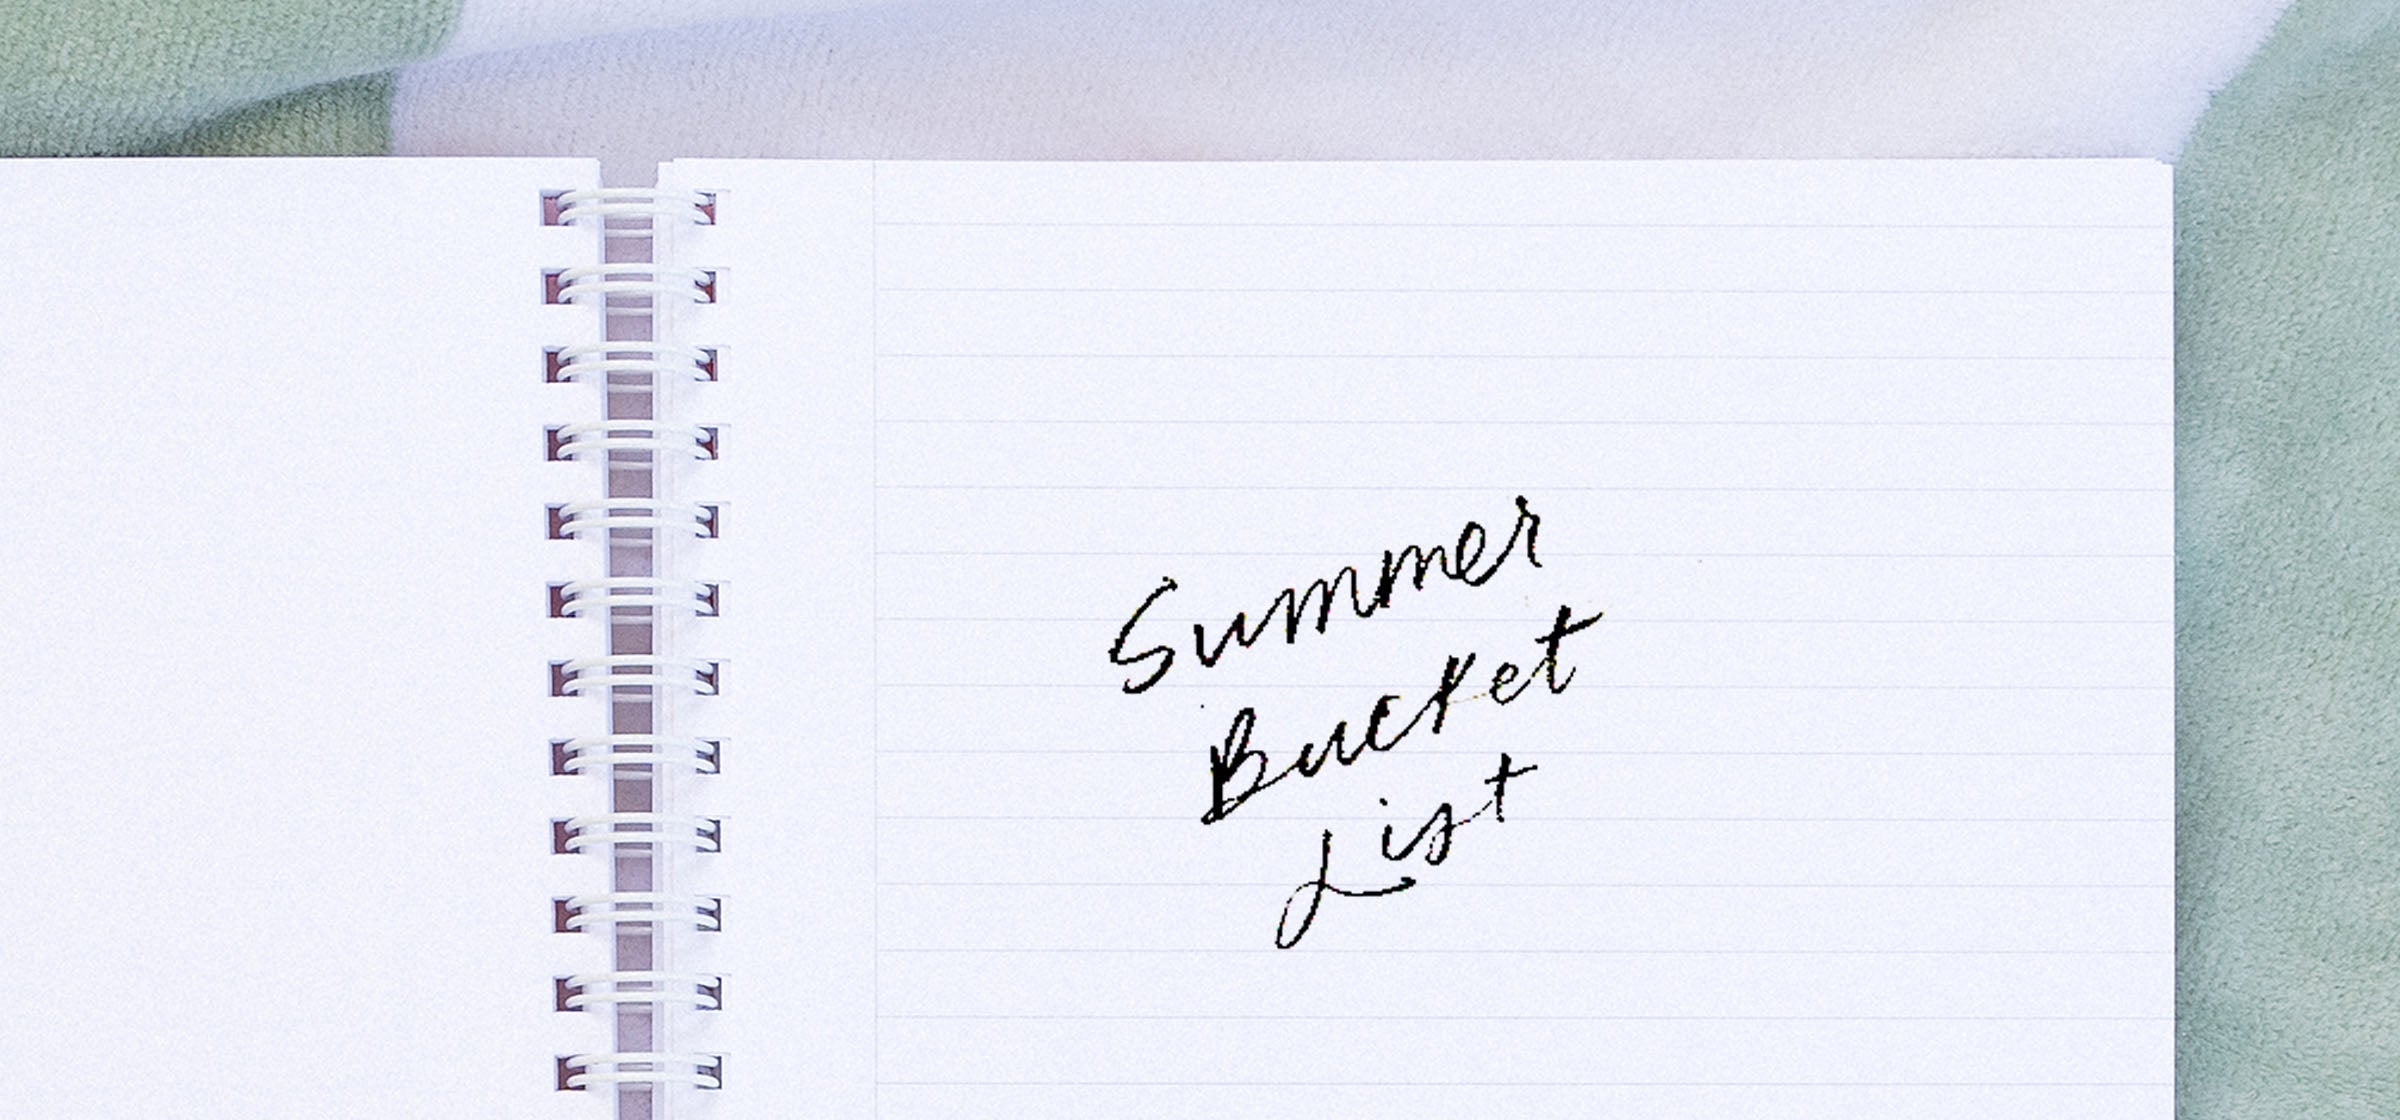 Summer
Bucket
List